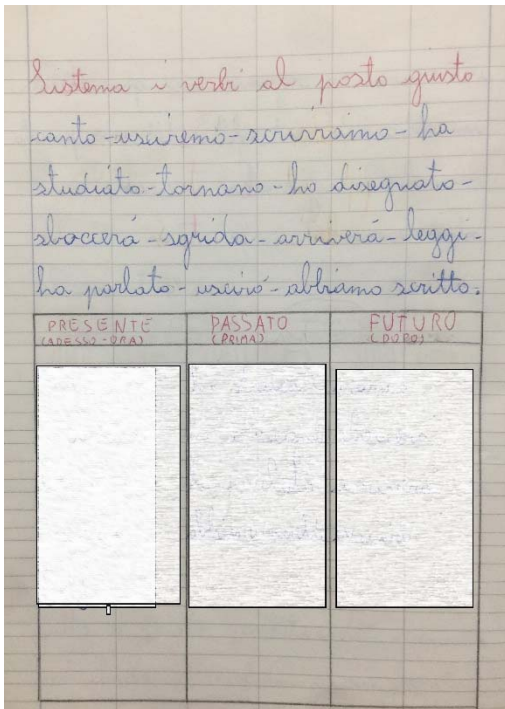 Sistema i verbi al posto giusto
canto - usciremo - scriviamo - ha
studiato - tornano - ho disegnato -
sboccerá - sgrida - arriverá - leggi -
ha parlato - usciró - abbiamo scritto.
PRESENTE PASSATO FUTURO
(ADESSO-ORA) (PRIMA) (DOPO)